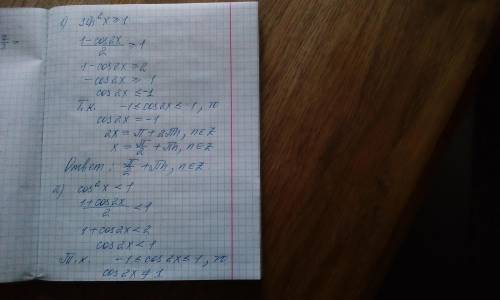 1) sin²x ≥ 1
1-cos2x / 2 ≥ 1
1-cos2x ≥ 2
-cos2x ≥ 1
cos2x ≤ -1
Т.к. -1 ≤ cos2x ≤ 1, то
cos2x = -1
2x = П + 2Пn, n∈Z
x = П/2 + Пn, n∈Z
Ответ: П/2 + Пn, n∈Z
2) cos²x < 1
1+cos2x / 2 < 1
1+cos2x < 2
cos2x < 1
Т.к. -1 ≤ cos2x ≤ 1, то
cos2x ≠ 1